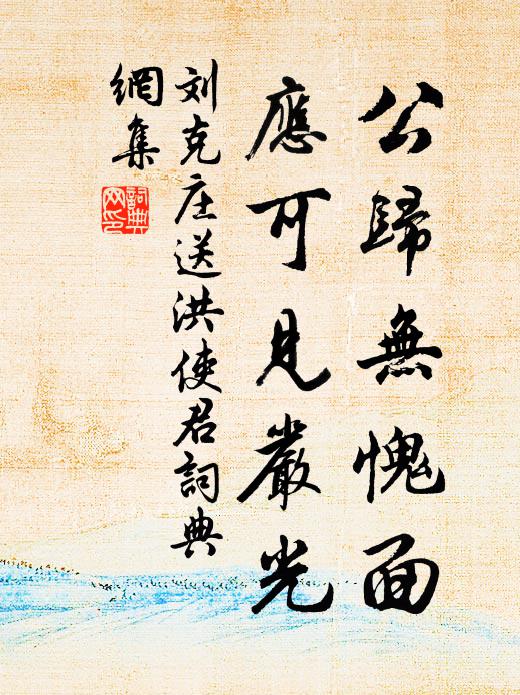 公歸無愧面
應可見嚴光
刘克庄送洪使君詞典
網集
詞典
网印